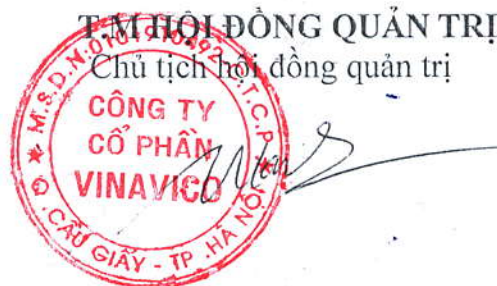 T.M HỘI ĐỒNG QUẢN TRỊ
Chủ tịch hội đồng quản trị
CÔNG TY
CỔ PHẦN
VINAVICO
Q. CẦU GIẤY - TP. HÀ NỘI